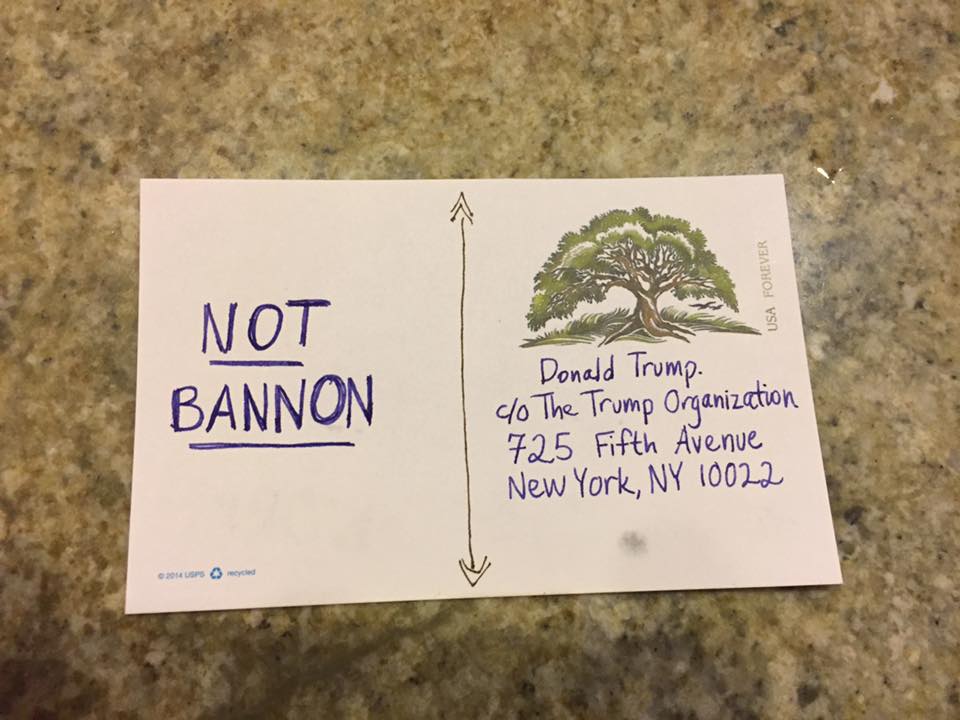 NOT
BANNON
© 2014 USPS recycled
USA FOREVER
Donald Trump.
c/o The Trump Organization
725 Fifth Avenue
New York, NY 10022